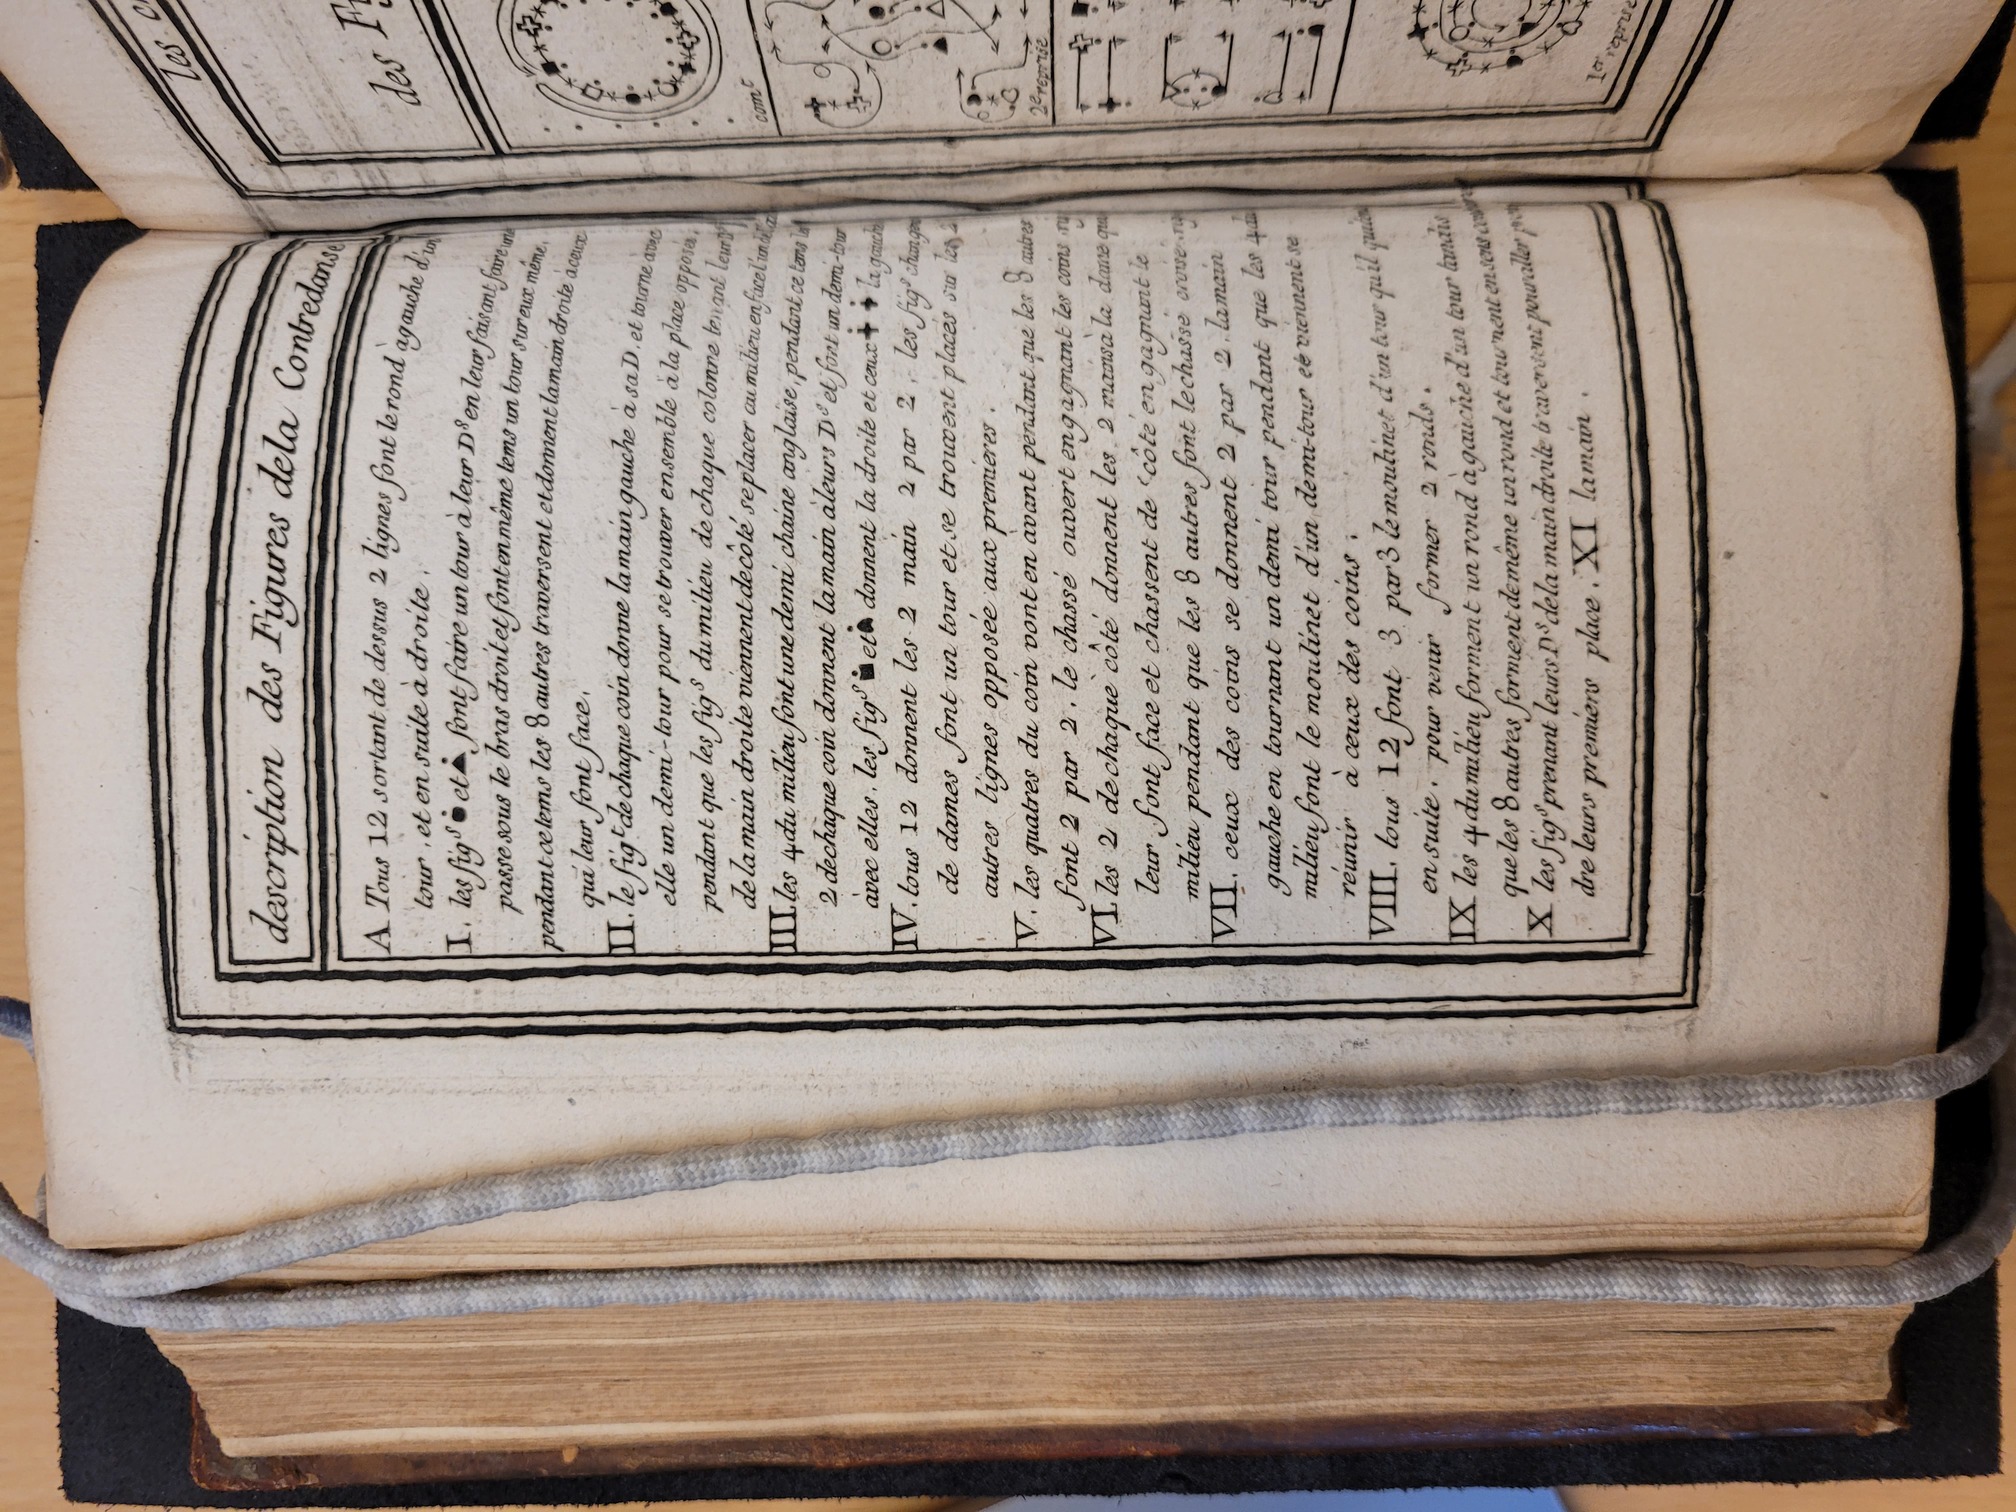 description des Figures dela Contredanse
A Tous 12 sortant de dessus 2 lignes font le rond à gauche d'un
tour, et en suite à droite.
I. les figs ● et ▲ font faire un tour à leur Ds en leur faisant faire une
passe sous le bras droit et font en même tems un tour sur eux même,
pendant ce tems les 8 autres traversent et donnent la main droite à ceux
qui leur font face.
II. le figt de chaque coin donne la main gauche à sa D. et tourne avec
elle un demi-tour pour se trouver ensemble à la place opposée,
pendant que les figs du milieu de chaque colonne tenant leur
de la main droite viennent de côté se placer au milieu en face
III. les 4 du milieu font une demi chaine anglaise, pendant ce tems les
2 de chaque coin donnent la main à leurs Ds et font un demi-tour
avec elles. les figs ■ et ♠ donnent la droite et ceux ✝ ✝ la gauche
IV. tous 12 donnent les 2 main 2 par 2, les figs changent
de dames font un tour et se trouvent placés sur les 2
autres lignes opposée aux premieres.
V. les quatres du coin vont en avant pendant que les 8 autres
font 2 par 2. le chassé ouvert en gagnant les coins
VI. les 2 de chaque côté donnent les 2 mains à la dame qui
leur font face et chassent de côté en gagnant le
milieu pendant que les 8 autres font le chassé
VII. ceux des coins se donnent 2 par 2. la main
gauche en tournant un demi tour pendant que les 4 du
milieu font le moulinet d'un demi-tour et viennent se
réunir à ceux des coins;
VIII. tous 12 font 3 par 3 le moulinet d'un tour qu'il
en suite. pour venir former 2 ronds.
IX les 4 du milieu forment un rond à gauche d'un tour tandis
que les 8 autres forment de même un rond et tournent en sens
X les figs prenant leurs Ds de la main droite traversent pour aller
dre leurs premiers place. XI la main.
les
des
comt
2e reprise
1er reprise